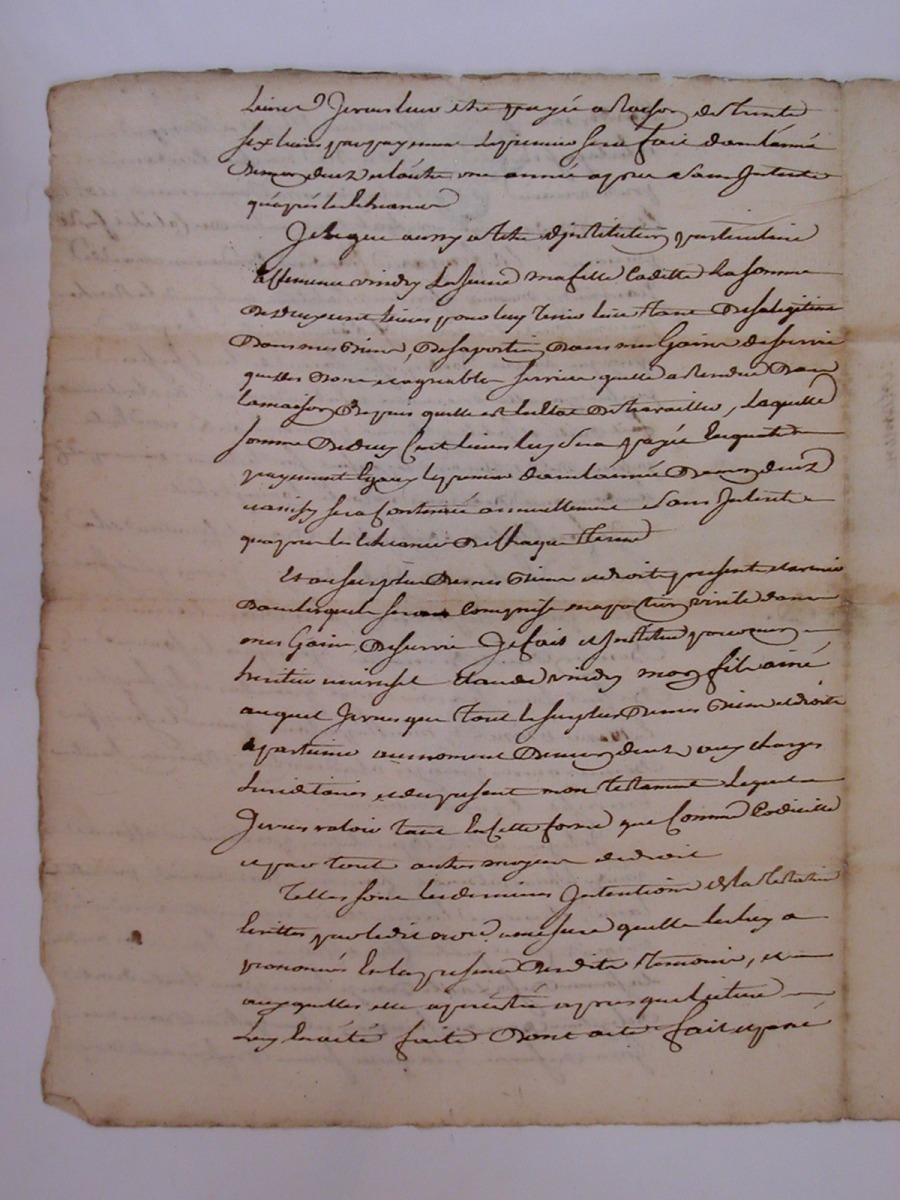 livres Je veux luy etre payée a raison de trente
six livres par payement le premier sera fait dans l'année
de mon deces et l'autre une année apres sans Interets
qu'après l'echeance
Je legue aussy a titre d'institution particuliere
a vindry la jeune ma fille Cadette la somme
de deux cent livres pour luy tenir lieu tant de sa legitime
dans mes biens, de sa portion dans mes Gains de survie
que des bons et agreables services quelle a rendu dans
la maison depuis quelle est en etat de travailler, laquelle
somme de deux Cent livres luy sera payée en quatre
payement Egaux le premier dans l'année de mon deces
et ainsy sera Continué annuellement sans Interet
qu'apres les echeances de chaque terme
Et au surplus de mes biens et droits presents et avenir
dans lesquels sera Comprise ma portion virile dans
mes Gains de survie Je fais et Institue pour mon
heritier universel Claude vindry mon fils ainé
auquel Je veux que tout le surplus de mes biens et droits
apartienne au moment de mon deces aux charges
hereditaires et du present mon testament lequel
Je veux valoir tant en cette forme que Comme Codicille
et par tout autre moyen de droit
Telles sont les dernieres Intentions de la testatrice
Ecrittes par ledit a mesure quelle les luy a
prononcés En la presence desdits temoins, et
auxquelles elle a persisté apres que lecture
luy En a été faite dont acte fait et passé